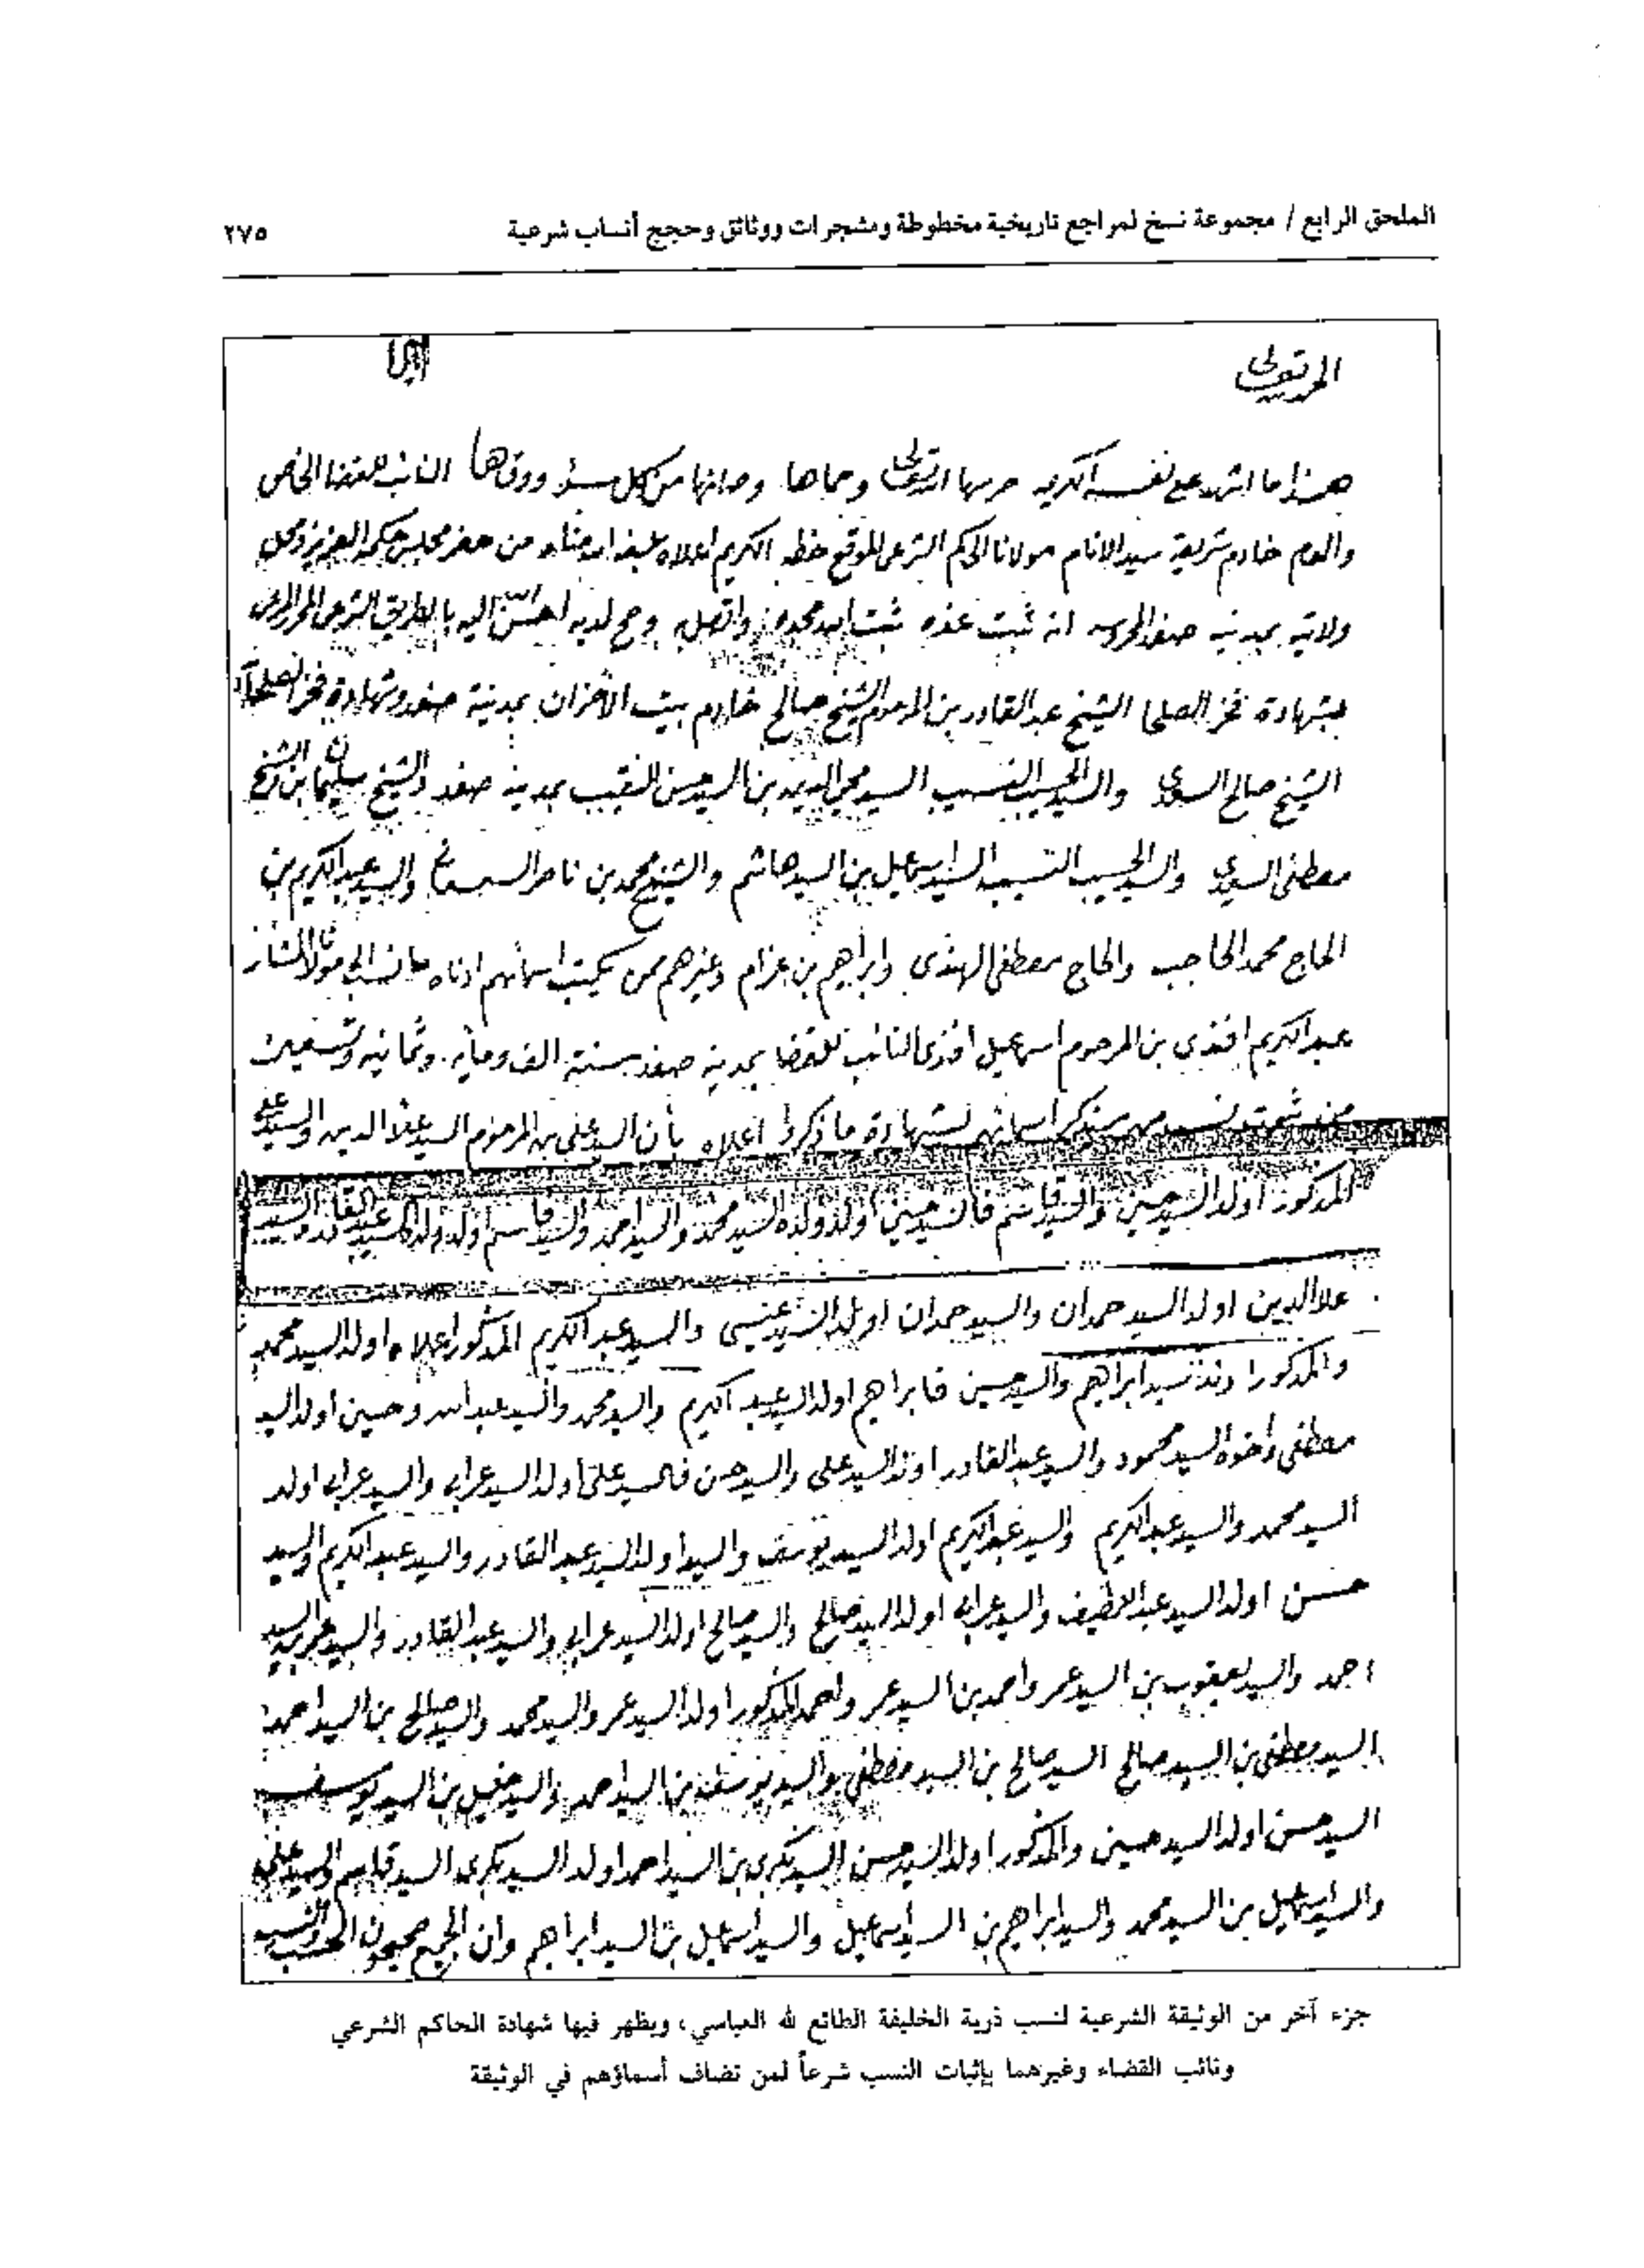 الملحق الرابع / مجموعة نسخ لمراجع تاريخية مخطوطة ومشجرات ووثائق وحجج أنساب شرعية
٢٧٥
هذا ما اشهد على نفسه الكريمه حرسها الله تعالى وحماها وصانها من كل سؤ ووقاها النائب للقضا الخاص
والعام خادم شريعة سيد الانام مولانا الحاكم الشرعي الموقع خطه الكريم اعلاه من حضر مجلس حكمه العزيز ومحل
ولايته بمدينه صفد المحروسه انه ثبت عنده وصح لديه احسن الله اليه بالطريق الشرعي المحرر المرعي
بشهادة فخر الصلحا الشيخ عبد القادر بن المرحوم الشيخ صالح خادم بيت الاحزان بمدينة صفد وشهادة فخر الصلحا
الشيخ صالح والسيد الحسيب النسيب السيد محي الدين بن السيد حسن النقيب بمدينة صفد والشيخ سليمان بن الشيخ
مصطفى والسيد الحسيب النسيب السيد اسمعيل بن السيد هاشم والشيخ محمد بن ناصر والسيد عبد الكريم بن
الحاج محمد الحاجب والحاج مصطفى الهندي وابراهيم بن عزام وغيرهم ممن يكتب اسمائهم ادناه
عبد الكريم افندي بن المرحوم اسمعيل افندي النائب للقضا بمدينة صفد سنة الف ومايه وثمانيه وتسعين
بشهادة ما ذكر اعلاه بأن السيد علي بن المرحوم السيد علا الدين والسيد علي
المذكور اولد السيد حسين والسيد قاسم فالسيد حسين اولد ولده السيد محمد والسيد احمد والسيد قاسم اولد ولده السيد عبد القادر والسيد
علا الدين اولد السيد حمدان والسيد حمدان اولد السيد عيسى والسيد عبد الكريم المذكور اعلاه اولد السيد محمد
والمذكور اولد السيد ابراهيم والسيد حسين فابراهيم اولد السيد عبد الكريم والسيد محمد والسيد عبد الله وحسين اولد السيد
مصطفى واخوه السيد محمود والسيد عبد القادر اولد السيد علي والسيد حسن فالسيد علي اولد السيد عرابي والسيد عرابي اولد
السيد محمد والسيد عبد الكريم والسيد عبد الكريم اولد السيد يوسف والسيد اولد السيد عبد القادر والسيد عبد الكريم والسيد
حسن اولد السيد عبد اللطيف والسيد عرابي اولد السيد صالح والسيد صالح اولد السيد عرابي والسيد عبد القادر والسيد
احمد والسيد يعقوب بن السيد عمر واحمد بن السيد عمر واحمد المذكور اولد السيد عمر والسيد محمد والسيد صالح بن السيد احمد
السيد مصطفى بن السيد صالح السيد صالح بن السيد مصطفى والسيد يوسف بن السيد احمد والسيد خليل بن السيد يوسف
السيد حسن اولد السيد حسين والمذكور اولد السيد حسن السيد بكري بن السيد احمد اولد السيد بكري السيد قاسم والسيد علي
والسيد اسمعيل بن السيد محمد والسيد ابراهيم بن السيد اسمعيل والسيد اسمعيل بن السيد ابراهيم وان الجميع صحيحون الحسب والنسب
جزء آخر من الوثيقة الشرعية لنسب ذرية الخليفة الطائع لله العباسي، ويظهر فيها شهادة الحاكم الشرعي
ونائب القضاء وغيرهما بإثبات النسب شرعاً لمن تضاف أسماؤهم في الوثيقة